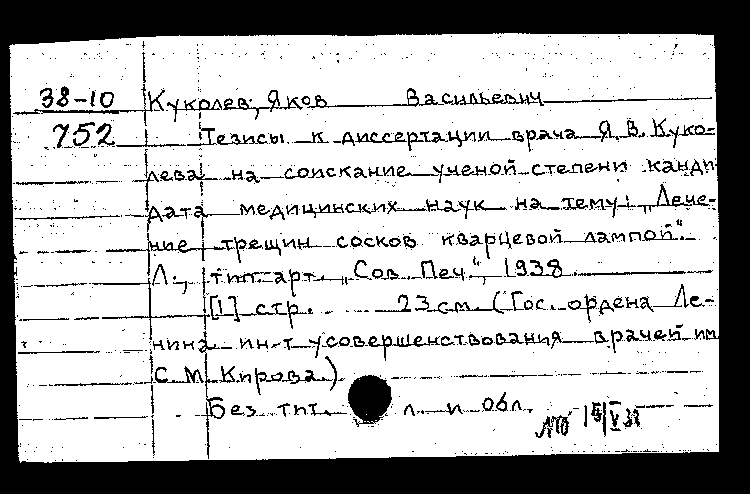 38-10 Куколев, Яков Васильевич
752 Тезисы к диссертации врача Я. В. Куко-
лева на соискание ученой степени канди
дата медицинских наук на тему: „Лече-
ние трещин сосков кварцевой лампой“.
Л., тип. арт. „Сов. Печ.“, 1938
[1] стр. 23 см. (Гос. ордена Ле-
нина ин-т усовершенствования врачей им
С. М. Кирова.)
Без тит. л. и обл.